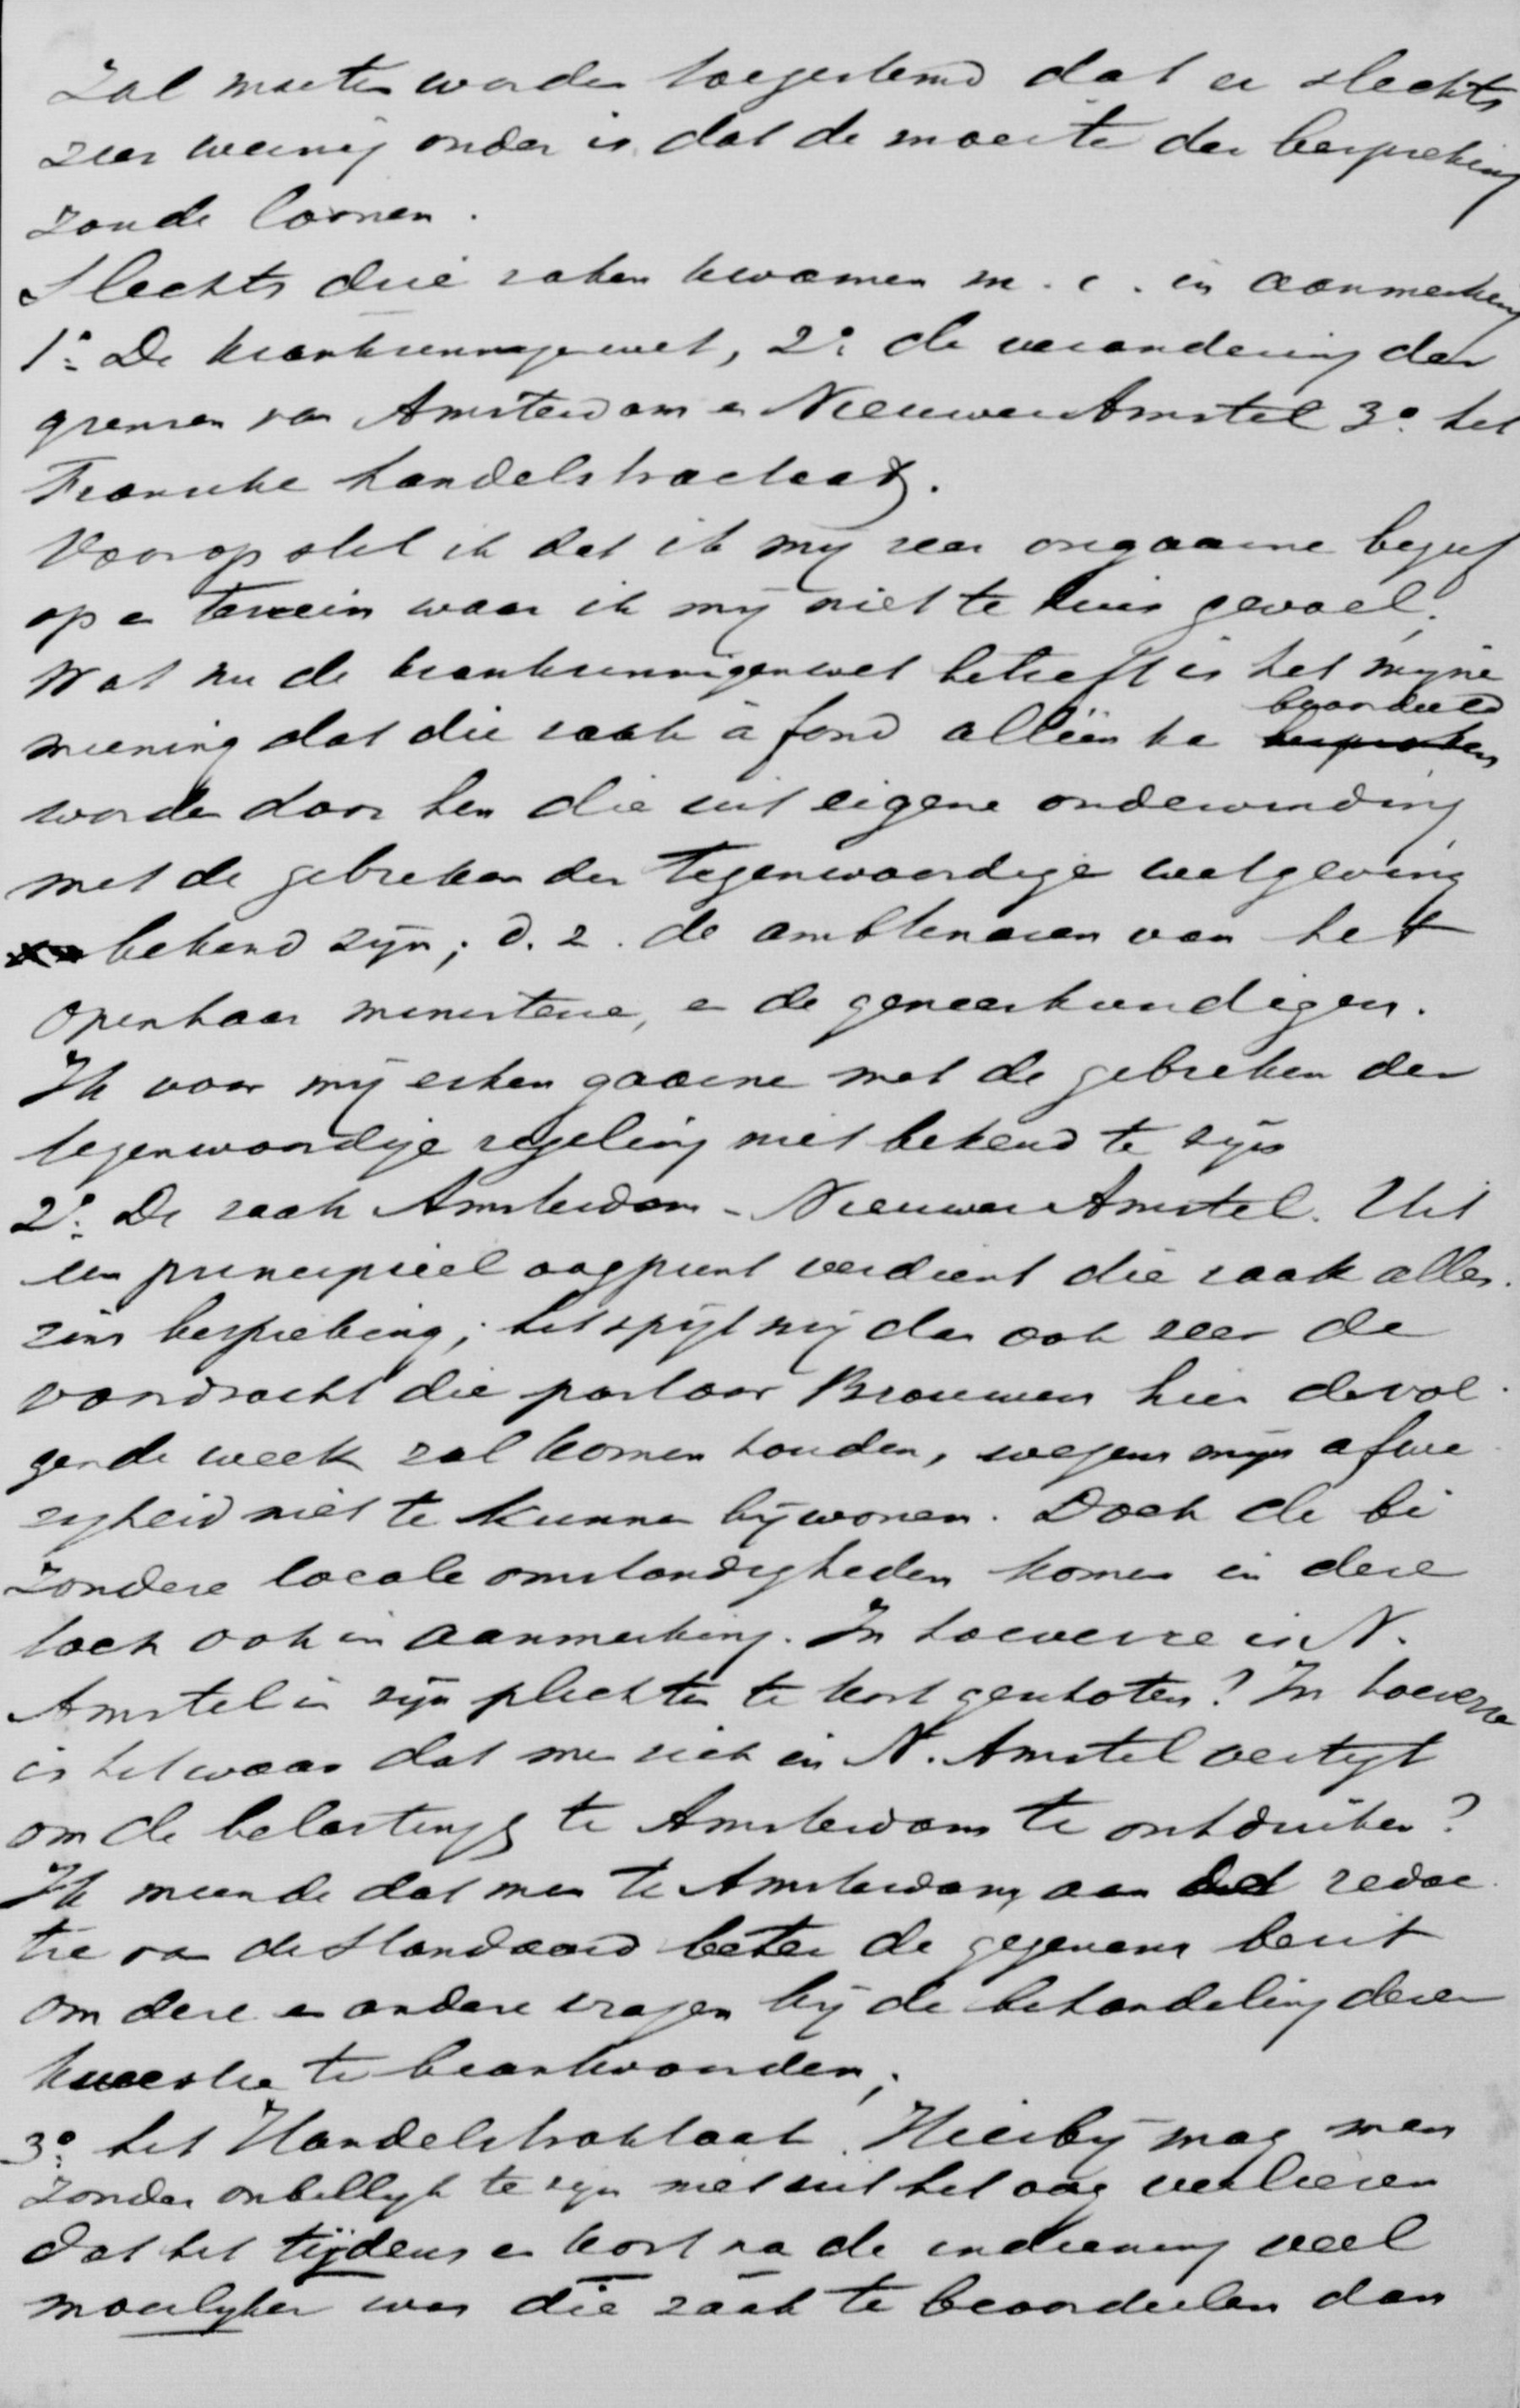 Zal moeten worden toegestemd dat er slechts
zeer weinig onder is dat de moeite der bespreking
zoude loonen.
Slechts drie zaken kwamen m. i. in aanmerking
1º. De krankzinnigenwet, 2º. de verandering der
grenzen van Amsterdam en Nieuwer Amstel 3º. het
Fransche handelstractaat.
Voorop stel ik dat ik mij zeer ongaarne begeef
op een terrein waar ik mij niet te huis gevoel.
Wat nu de krankzinnigenwet betreft is het mijne
meening dat die zaak à fond alléén ka beoordeeld
worden door hen die uit eigene ondervinding
met de gebreken der tegenwoordige wetgeving
bekend zijn; d. z. de ambtenaren van het
openbaar ministerie, en de geneeskundigen.
Ik voor mij erken gaarne met de gebreken der
tegenwoordige regeling niet bekend te zijn
2º. De zaak Amsterdam - Nieuwer Amstel. Uit
een principieel oogpunt verdient die zaak alles.
zins bespreking; het spijt mij dan ook zeer de
voordracht die pastoor Brouwers hier de vol.
gende week zal komen houden, wegens mijn afwe
zigheid niet te kunnen bijwonen. Doch de bi
zondere locale omstandigheden komen in deze
toch ook in aanmerking. In hoeverre is N.
Amstel in zijn plichten te kort geschoten? In hoeverre
is het waar dat men zich in N. Amstel vestigt
om de belasting te Amsterdam te ontduiken?
Ik meende dat men te Amsterdam aan de redac
tie van de Standaard beter de gegevens bezit
om deze en andere vragen bij de behandeling dezer
kwestie te beantwoorden;
3º. het Handelstraktaat. Hierbij mag men
zonder onbillijk te zijn niet uit het oog verliezen
dat het tijdens en kort na de indiening veel
moeilijker was die zaak te beoordeelen dan